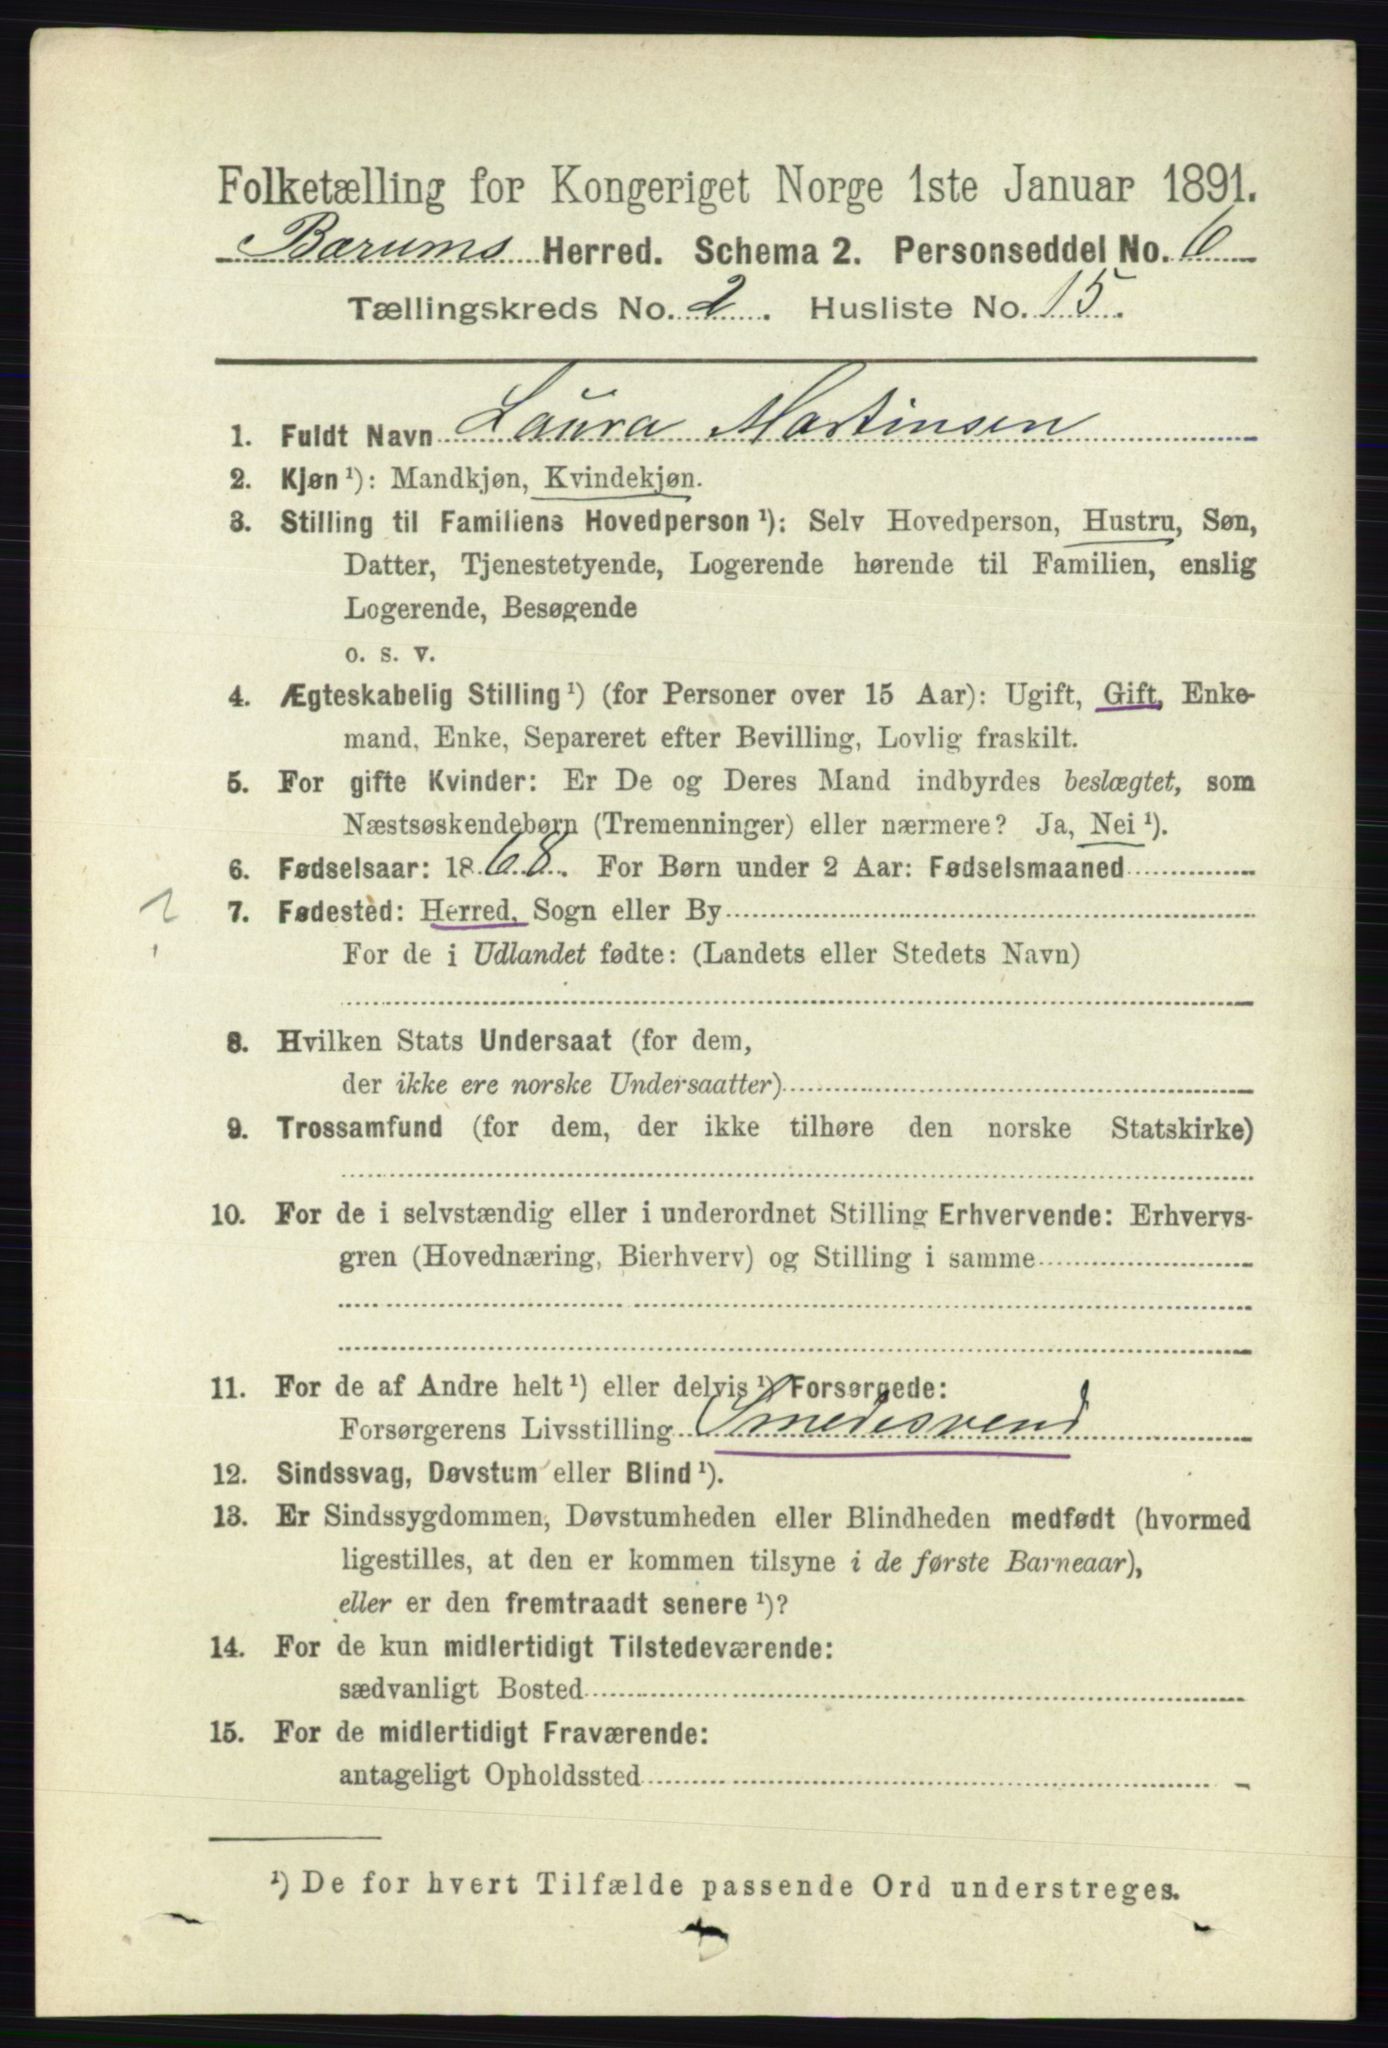 Folketælling for Kongeriget Norge 1ste Januar 1891.
Bærums Herred. Schema 2. Personseddel No. 6
Tællingskreds No. 2. Husliste No. 15.
1. Fuldt Navn Laura Martinsen
2. Kjøn ¹): Mandkjøn, Kvindekjøn.
3. Stilling til Familiens Hovedperson ¹): Selv Hovedperson, Hustru, Søn,
Datter, Tjenestetyende, Logerende hørende til Familien, enslig
Logerende, Besøgende
o. s. v.
4. Ægteskabelig Stilling ¹) (for Personer over 15 Aar): Ugift, Gift, Enke-
mand, Enke, Separeret efter Bevilling, Lovlig fraskilt.
5. For gifte Kvinder: Er De og Deres Mand indbyrdes beslægtet, som
Næstsøskendebørn (Tremenninger) eller nærmere? Ja, Nei ¹).
6. Fødselsaar: 1868. For Børn under 2 Aar: Fødselsmaaned
? 7. Fødested: Herred, Sogn eller By
For de i Udlandet fødte: (Landets eller Stedets Navn)
8. Hvilken Stats Undersaat (for dem,
der ikke ere norske Undersaatter)
9. Trossamfund (for dem, der ikke tilhøre den norske Statskirke)
10. For de i selvstændig eller i underordnet Stilling Erhvervende: Erhvervs-
gren (Hovednæring, Bierhverv) og Stilling i samme
11. For de af Andre helt ¹) eller delvis ¹) Forsørgede:
Forsørgerens Livsstilling Smedesvend
12. Sindssvag, Døvstum eller Blind ¹).
13. Er Sindssygdommen, Døvstumheden eller Blindheden medfødt (hvormed
ligestilles, at den er kommen tilsyne i de første Barneaar),
eller er den fremtraadt senere ¹)?
14. For de kun midlertidigt Tilstedeværende:
sædvanligt Bosted
15. For de midlertidigt Fraværende:
antageligt Opholdssted
¹) De for hvert Tilfælde passende Ord understreges.